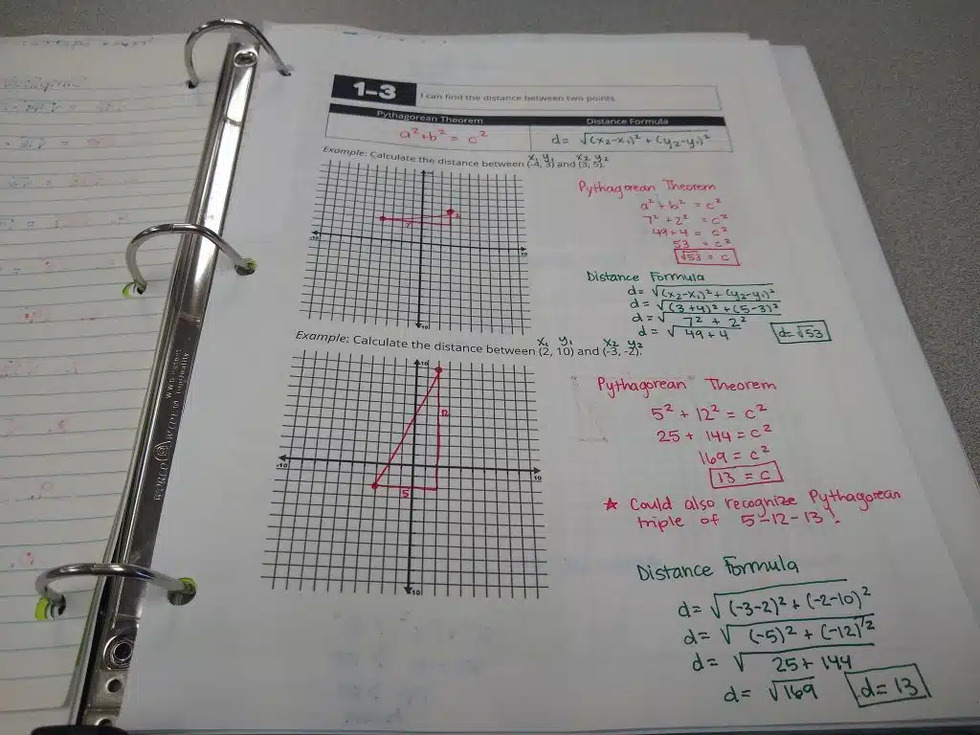 1-3 I can find the distance between two points
Pythagorean Theorem Distance Formula
a² + b² = c² d = √(x₂-x₁)² + (y₂-y₁)²
x₁ y₁ x₂ y₂
Example: Calculate the distance between (-4, 3) and (3, 5).
10
-10
10
-10
7
2
Pythagorean Theorem
a² + b² = c²
7² + 2² = c²
49 + 4 = c²
53 = c²
√53 = c
Distance Formula
d = √(x₂-x₁)² + (y₂-y₁)²
d = √(3+4)² + (5-3)²
d = √ 7² + 2²
d = √ 49 + 4 d = √53
x₁ y₁ x₂ y₂
Example: Calculate the distance between (2, 10) and (-3, -2).
10
12
-10
10
5
-10
Pythagorean Theorem
5² + 12² = c²
25 + 144 = c²
169 = c²
13 = c
★ Could also recognize Pythagorean
triple of 5-12-13!
Distance Formula
d = √(-3-2)² + (-2-10)²
d = √ (-5)² + (-12)²
d = √ 25 + 144
d = √169 d = 13